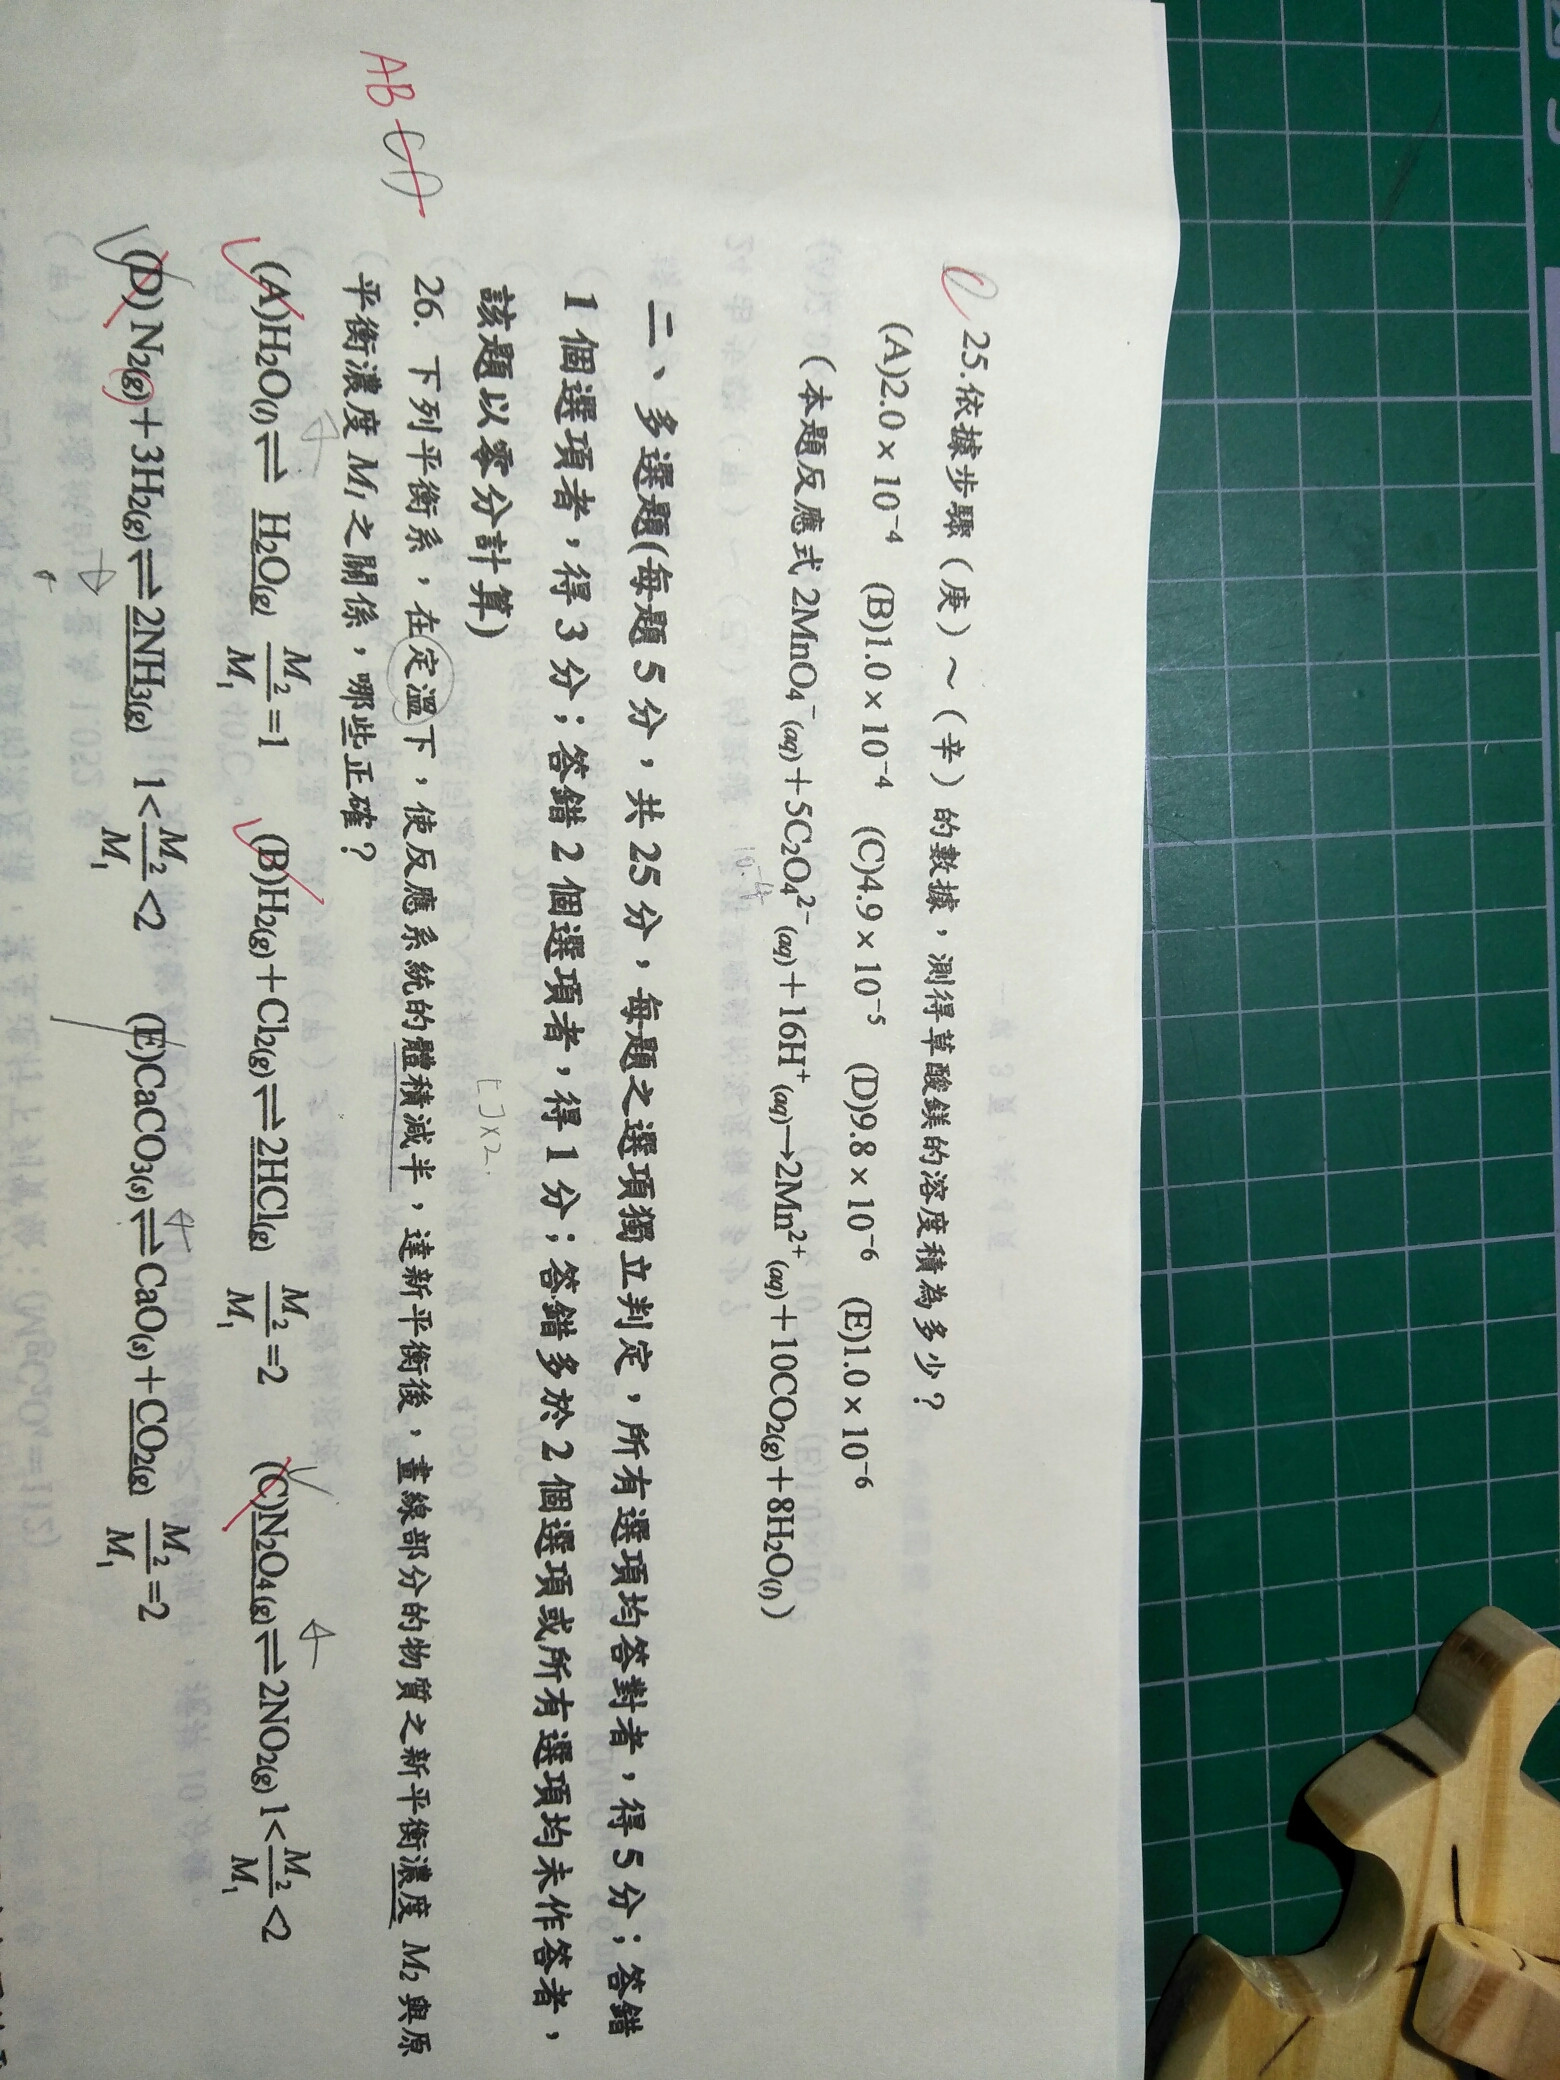 25.依據步驟（庚）～（辛）的數據，測得草酸鎂的溶度積為多少？
(A)2.0×10⁻⁴ (B)1.0×10⁻⁴ (C)4.9×10⁻⁵ (D)9.8×10⁻⁶ (E)1.0×10⁻⁶
（本題反應式 2MnO₄⁻(aq)+5C₂O₄²⁻(aq)+16H⁺(aq)→2Mn²⁺(aq)+10CO₂(g)+8H₂O(l)）
二、多選題(每題 5 分，共 25 分，每題之選項獨立判定，所有選項均答對者，得 5 分；答錯
1 個選項者，得 3 分；答錯 2 個選項者，得 1 分；答錯多於 2 個選項或所有選項均未作答者，
該題以零分計算)
[ ]×2.
AB
26. 下列平衡系，在定溫下，使反應系統的體積減半，達新平衡後，畫線部分的物質之新平衡濃度 M₂ 與原
平衡濃度 M₁ 之關係，哪些正確？
(A)H₂O(l)⇌ H₂O(g) M₂/M₁=1 (B)H₂(g)+Cl₂(g)⇌2HCl(g) M₂/M₁=2 (C)N₂O₄(g)⇌2NO₂(g) 1<M₂/M₁<2
(D) N₂(g)+3H₂(g)⇌2NH₃(g) 1<M₂/M₁<2 (E)CaCO₃(s)⇌CaO(s)+CO₂(g) M₂/M₁=2